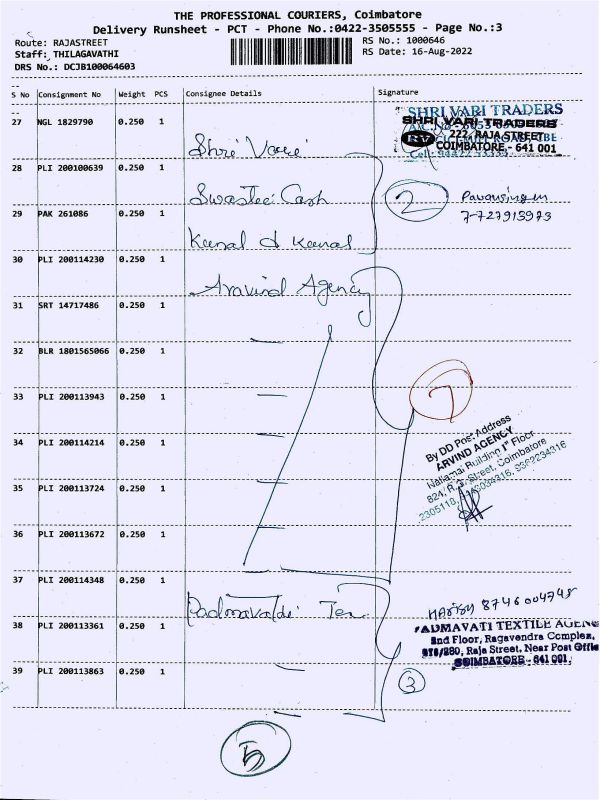 THE PROFESSIONAL COURIERS, Coimbatore
Delivery Runsheet - PCT - Phone No.:0422-3505555 - Page No.:3
Route: RAJASTREET
RS No.: 1000646
Staff: THILAGAVATHI
RS Date: 16-Aug-2022
DRS No.: DCJB100064603
S No Consignment No Weight PCS Consignee Details Signature
27 NGL 1829790 0.250 1
SHRI VARI TRADERS
SHRI VARI TRADERS
222, RAJA STREET
COIMBATORE - 641 001
Shri Vari
28 PLI 200100639 0.250 1
2
7-727913973
29 PAK 261086 0.250 1
30 PLI 200114230 0.250 1
Aravind Agency
31 SRT 14717486 0.250 1
32 BLR 1801565066 0.250 1
33 PLI 200113943 0.250 1
7
34 PLI 200114214 0.250 1
By DD Post Address
ARVIND AGENCY
Nallamai Building 1st Floor
824, R.G. Street, Coimbatore
35 PLI 200113724 0.250 1
36 PLI 200113672 0.250 1
37 PLI 200114348 0.250 1
Padmavathi Tex
8746004748
38 PLI 200113361 0.250 1
PADMAVATI TEXTILE AGENC
2nd Floor, Ragavendra Complex,
Raja Street, Near Post Offic
COIMBATORE - 641 001.
39 PLI 200113863 0.250 1
3
5